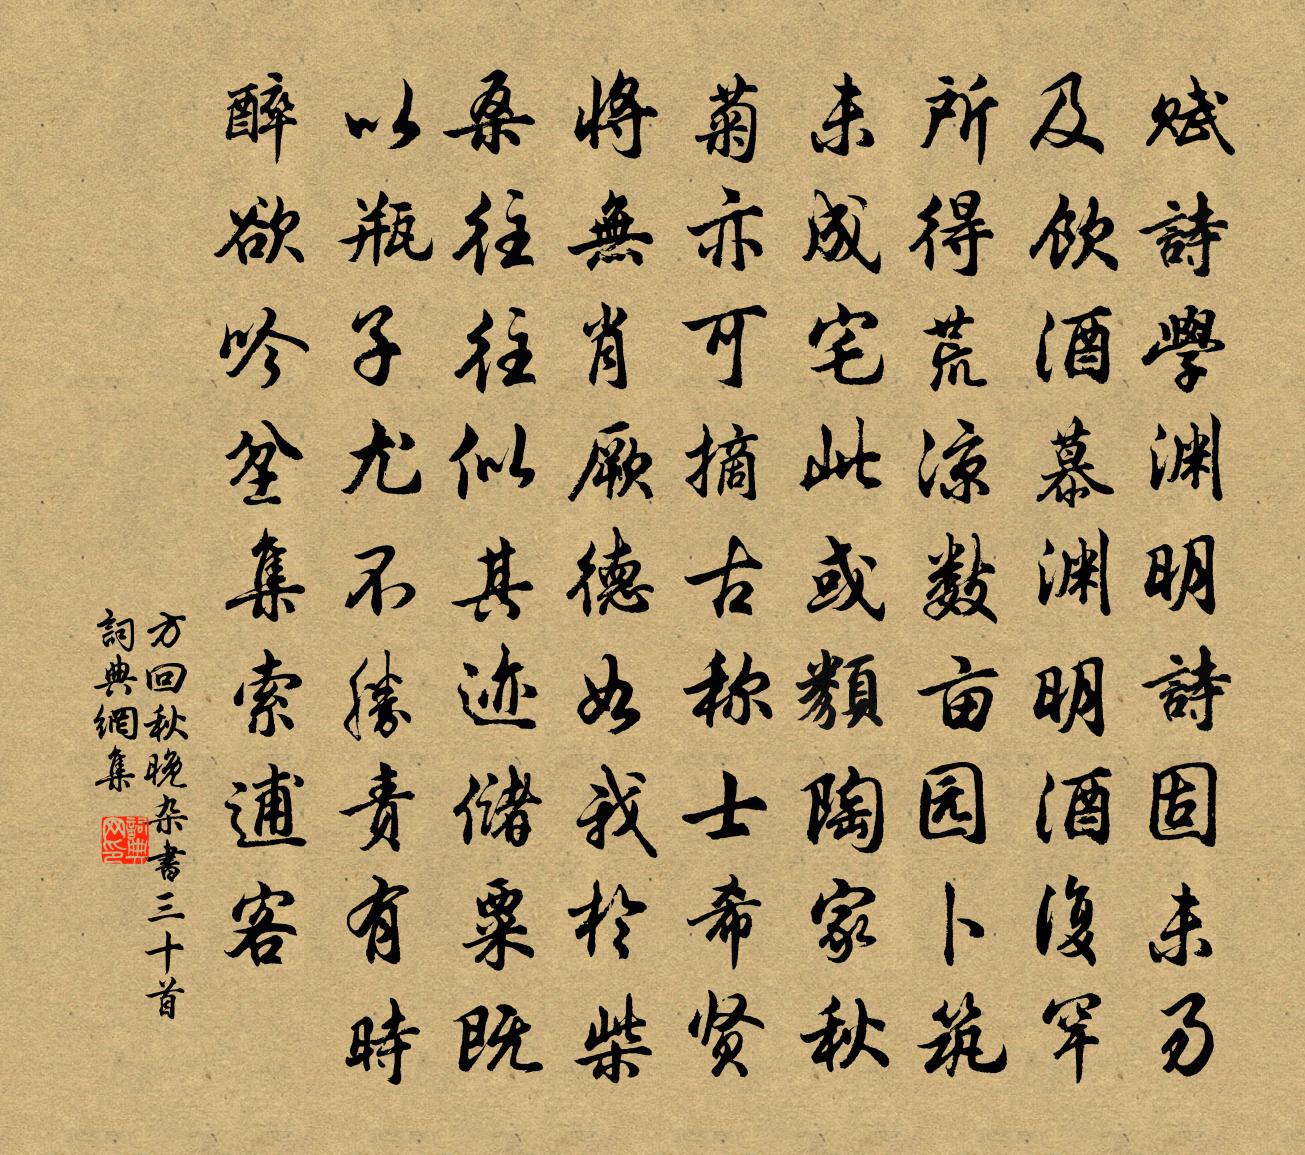 賦詩學渊明詩固未易
及飲酒慕渊明酒復罕
所得荒凉數亩园卜筑
未成宅此或類陶家秋
菊亦可摘古称士希贤
将無肖厥德如我於柴
桑往往似其迹儲粟既
以瓶子尤不勝责有時
醉欲吟坌集索逋客
方回秋晚杂書三十首
詞典網集
詞典网印